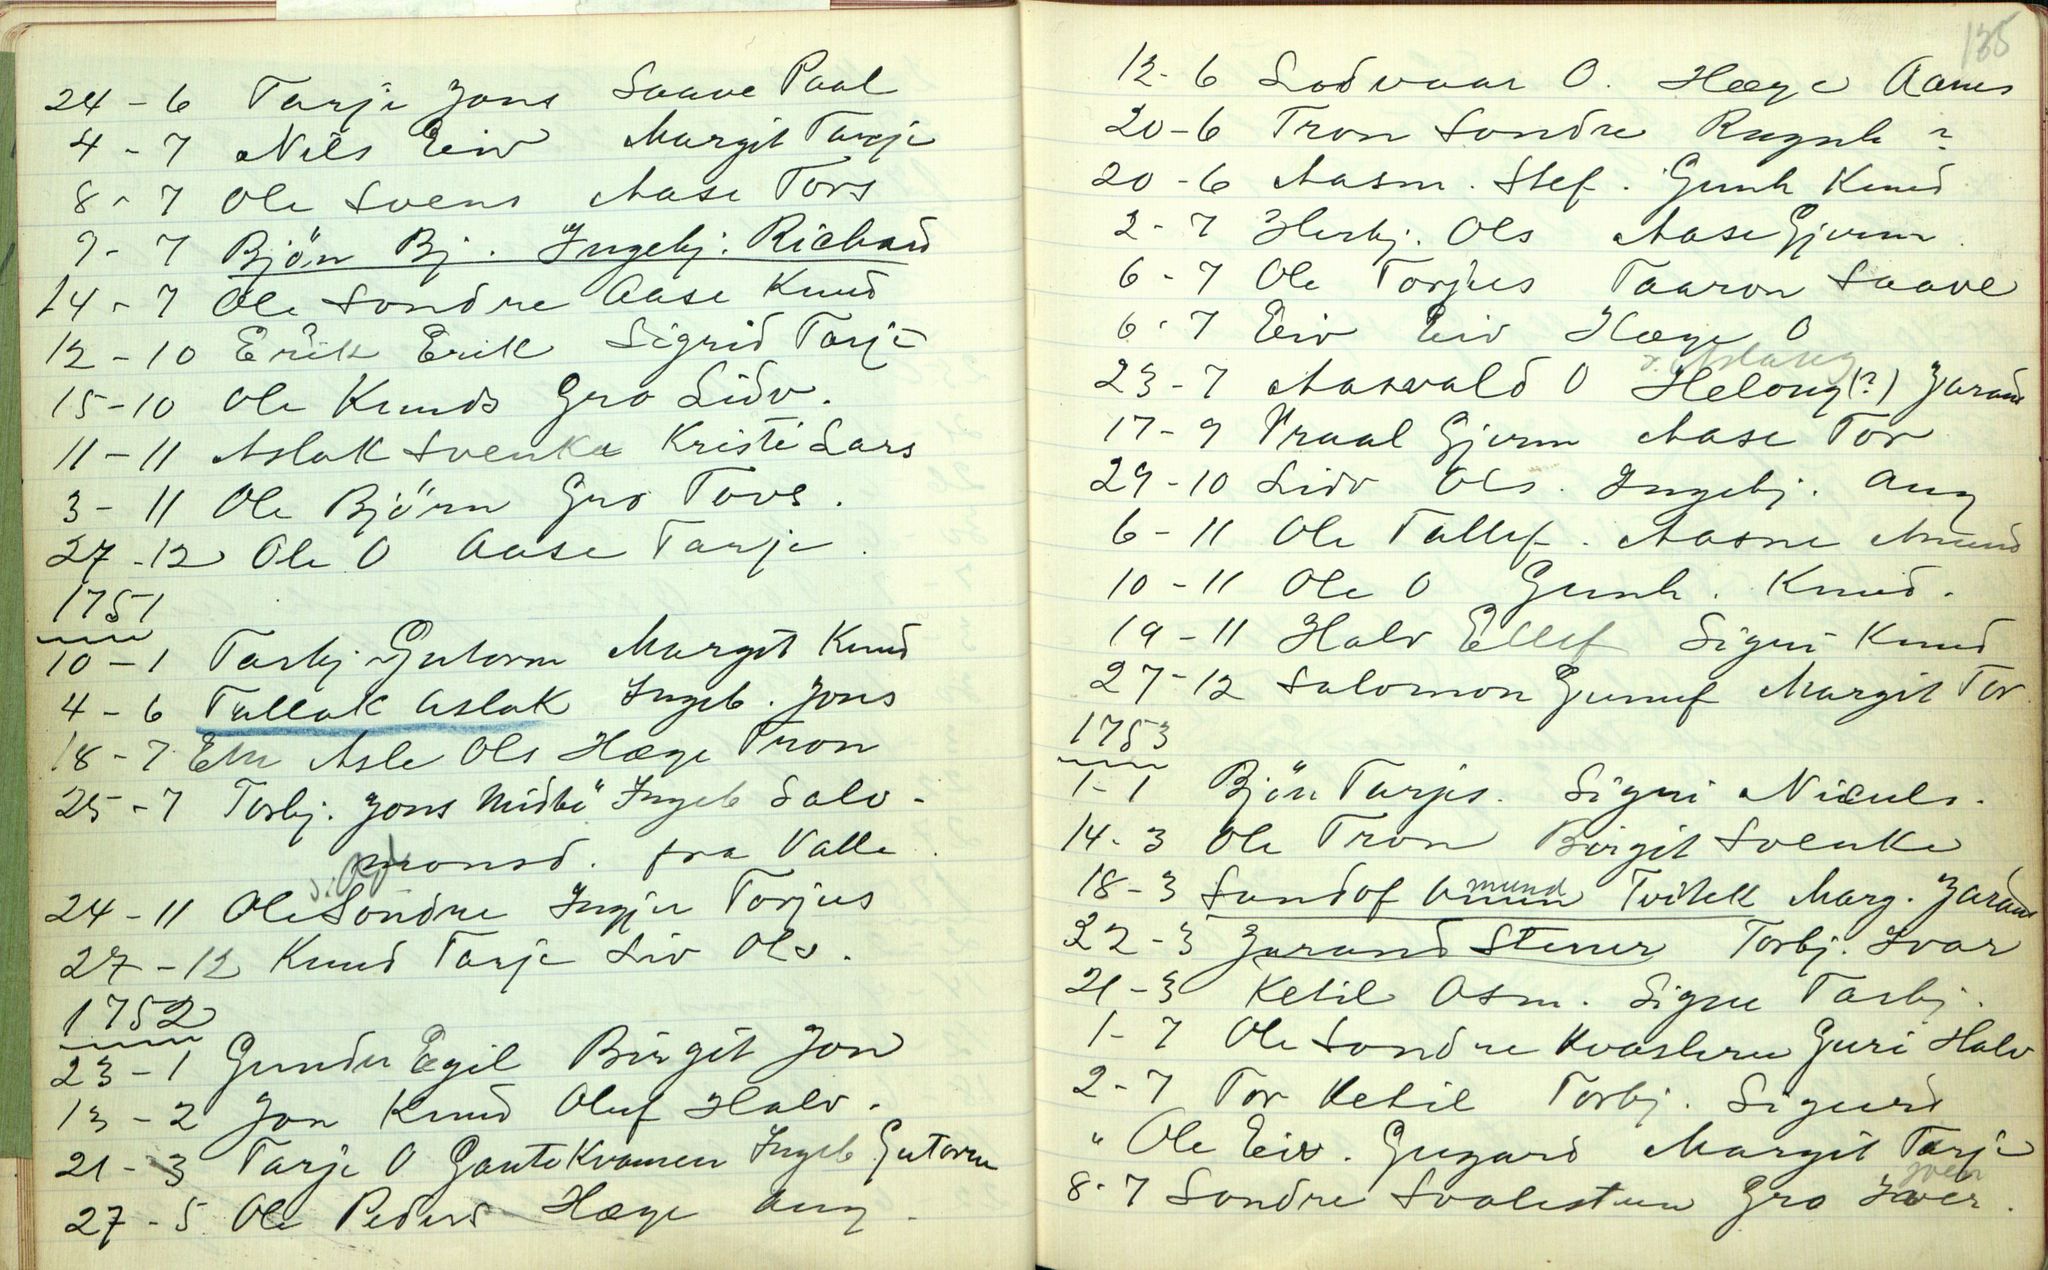 24 - 6 Tarje Jons Saave Paal
4 - 7 Nils Eiv Margit Tarje
8 - 7 Ole Svens Aase Tors
9 - 7 Bjön Bj. Ingebj. Richard
14 - 7 Ole Sondre Aase Knud
12 - 10 Erik Erik Sigrid Tarje
15 - 10 Ole Knuds Gro Lidv.
11 - 11 Aslak Svenke Kristi Lars
3 - 11 Ole Björn Gro Tovs.
27 - 12 Ole O Aase Tarje.
1751
10 - 1 Tarbj Gutorm Margit Knud
4 - 6 Tallak Aslak Ingeb. Jons
18 - 7 Em Asle Ols Hæge Tron
25 - 7 Torbj. Jons Midbö Ingeb Salv-
monsd. fra Valle.
24 - 11 Ole Sondre Ingjer Torjus
27 - 12 Knud Tarje Liv Ols.
1752
23 - 1 Gunder Egil Birgit Jon
13 - 2 Jon Knud Oluf Halv.
21 - 3 Tarje O Gautekvamen Ingeb Gutorm
27 - 5 Ole Peders Hæge Aug.
135
12 - 6 Lodvaar O. Hæge Aanes
20 - 6 Tron Sondre Ragnh ?
20 - 6 Aasm. Stef. Gunh Knud
2 - 7 Herbj. Ols Aase Gjerm.
6 - 7 Ole Torjus Taaron Saave
6 - 7 Eiv Eiv Hæge O
23 - 7 Aasvald O Helong(?) Jarand
17 - 9 Vraal Gjerm Aase Tor
29 - 10 Lidv Ols. Ingebj. Aug
6 - 11 Ole Tallef. Aasne Amund
10 - 11 Ole O Gunh. Knud.
19 - 11 Halv Ellef Signi Knud
27 - 12 Salomon Gunuf Margit Tor
1753
1 - 1 Bjön Tarjes. Signi Niculs.
14 - 3 Ole Tron Birgit Svenke
18 - 3 Sundof Amund Tvitekk Marg. Jarand
22 - 3 Jarand Stener Torbj. Ivar
21 - 3 Ketil Osm. Signe Tarbj.
1 - 7 Ole Sondre Kvasherue Guri Halv
2 - 7 Tor Ketil Torbj. Sigurd
" Ole Eiv. Gugard Margit Tarje
8 - 7 Sondre Svalestuen Gro Iver.